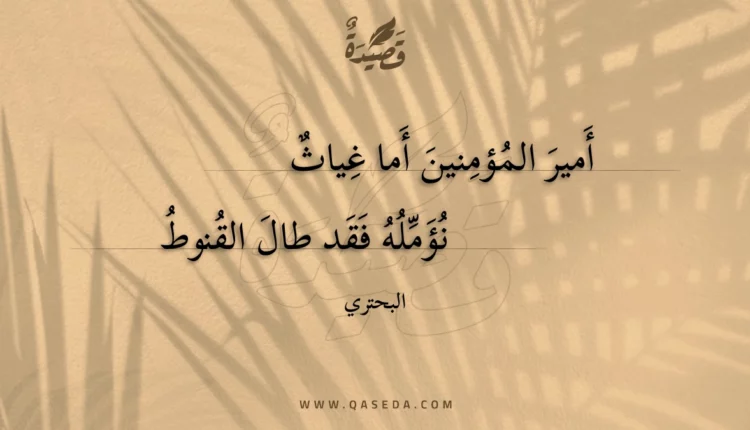 قَصِيدَةٌ
أَميرَ المُؤمِنينَ أَما غِياثٌ
نُؤَمِّلُهُ فَقَد طالَ القُنوطُ
البحتري
WWW.QASEDA.COM